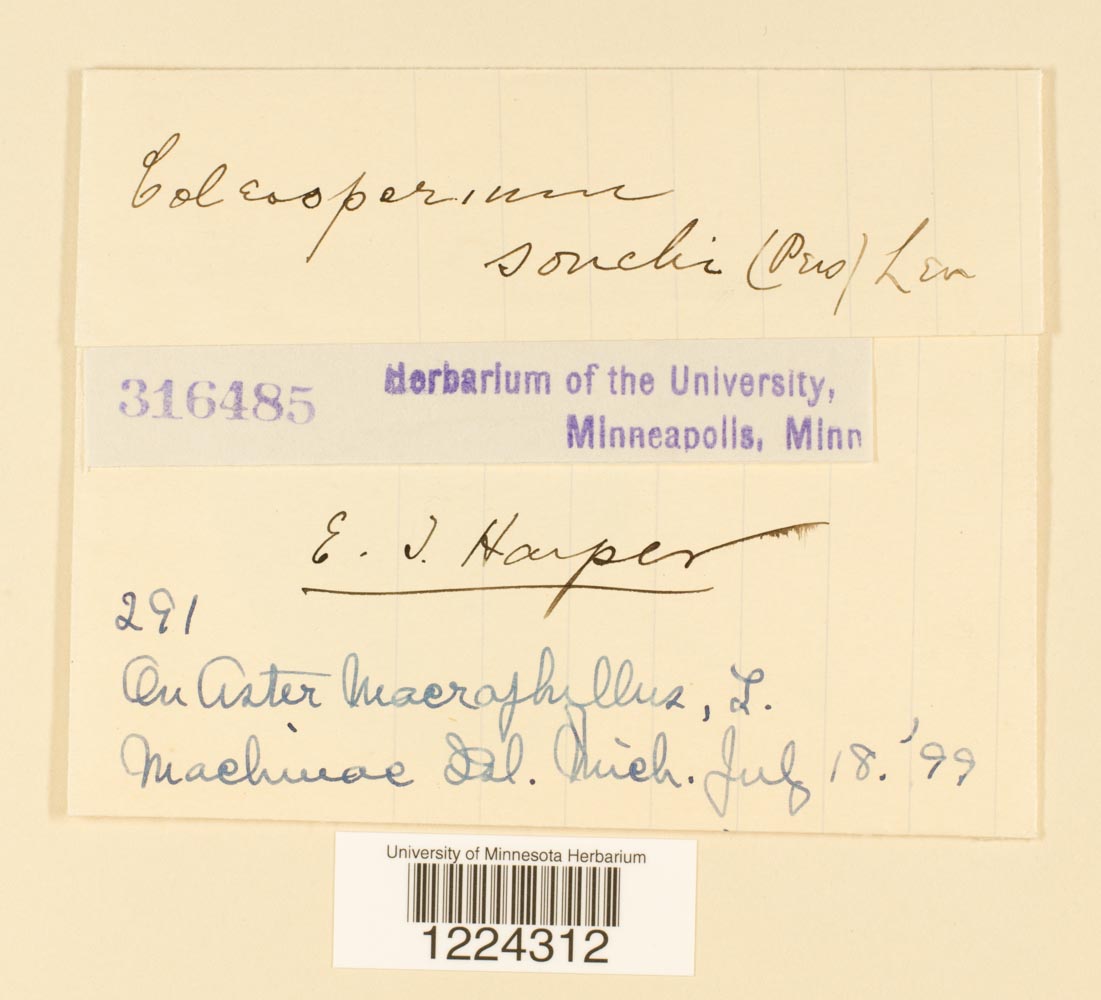 Coleosporium
sonchi (Pers) Lev
316485
Herbarium of the University,
Minneapolis, Minn
E. T. Harper
291
On Aster Macrophyllus, L.
Machinac Isl. Mich. July 18. '99
University of Minnesota Herbarium
1224312